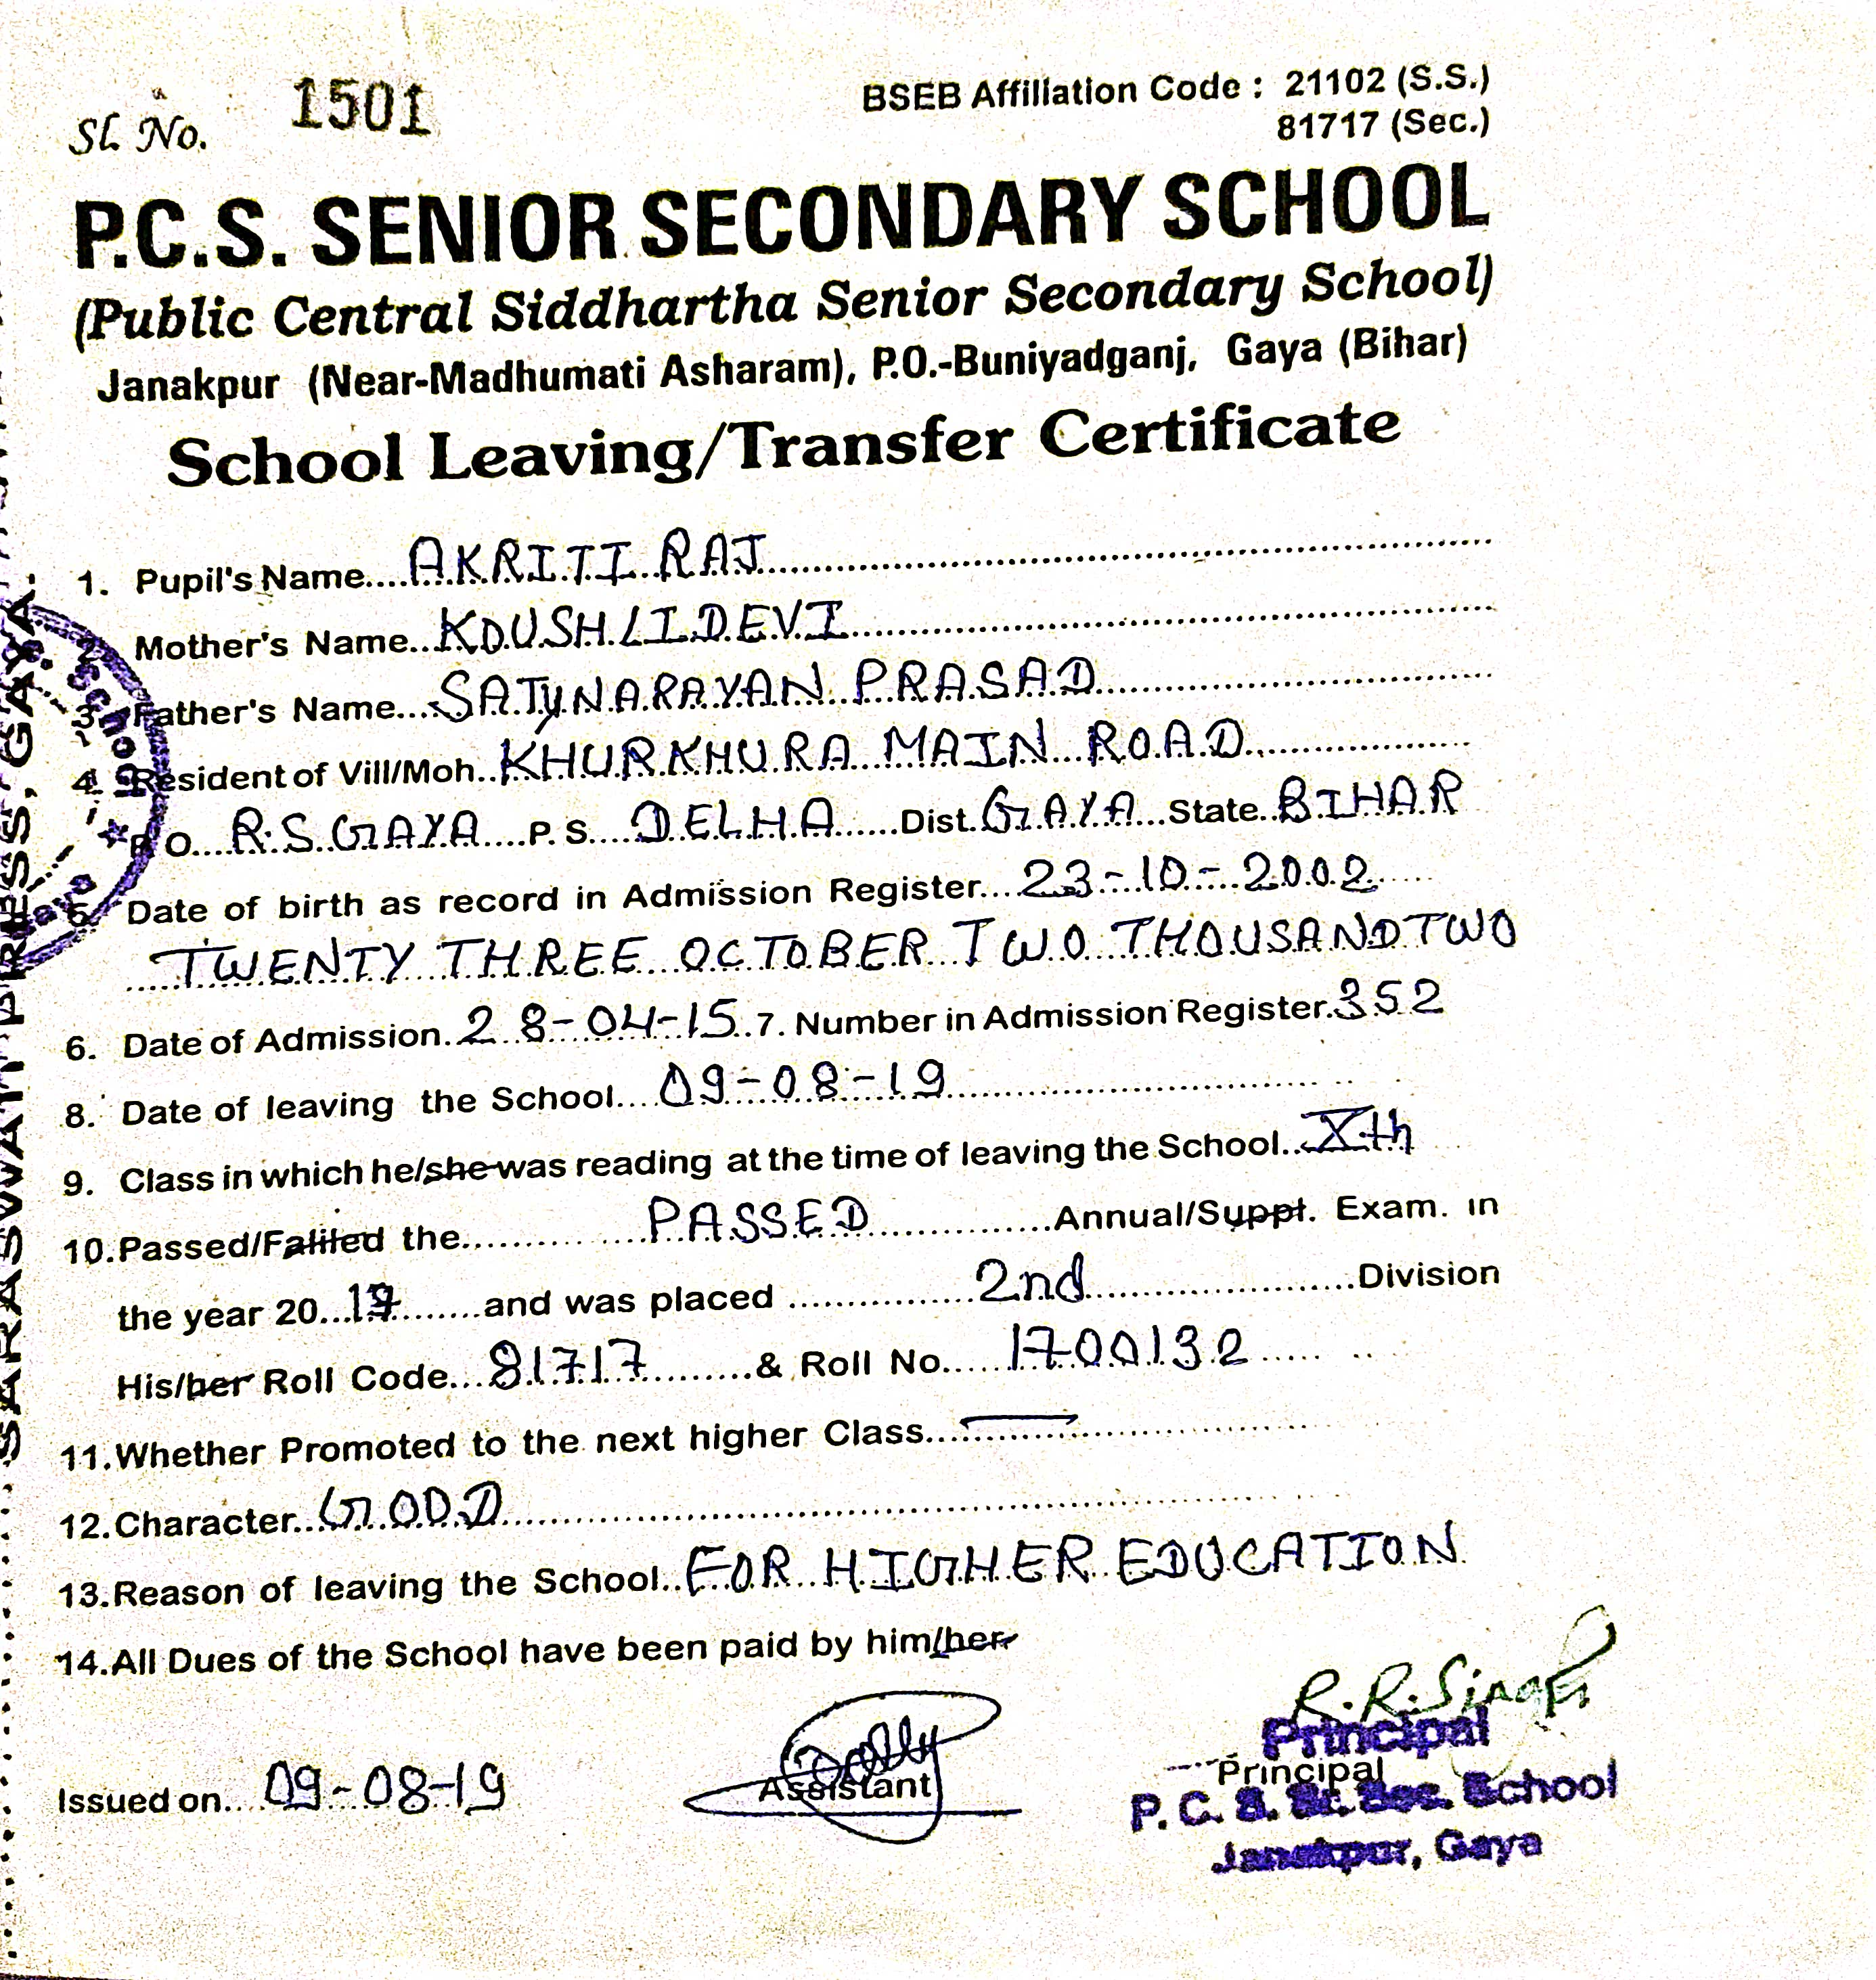 Sl. No. 1501
BSEB Affiliation Code : 21102 (S.S.)
81717 (Sec.)
P.C.S. SENIOR SECONDARY SCHOOL
(Public Central Siddhartha Senior Secondary School)
Janakpur (Near-Madhumati Asharam), P.O.-Buniyadganj, Gaya (Bihar)
School Leaving/Transfer Certificate
1. Pupil's Name....AKRITI RAJ
2. Mother's Name...KOUSHLI DEVI
3. Father's Name....SATYNARAYAN PRASAD
4. Resident of Vill/Moh..KHURKHURA MAIN ROAD
P.O....R.S GAYA....P.S....DELHA......Dist.GAYA...State..BIHAR
5. Date of birth as record in Admission Register....23-10-2002
TWENTY THREE OCTOBER TWO THOUSAND TWO
6. Date of Admission..28-04-15..7. Number in Admission Register.352
8. Date of leaving the School....09-08-19
9. Class in which he/she was reading at the time of leaving the School...Xth
10.Passed/Falited the............PASSED............Annual/Suppt. Exam. in
the year 20...........and was placed ...............2nd......................Division
His/her Roll Code...81717.........& Roll No.....1700132
11.Whether Promoted to the next higher Class....
12.Character...GOOD
13.Reason of leaving the School..FOR HIGHER EDUCATION
14.All Dues of the School have been paid by him/her
R.R.Singh
Principal
Assistant
Principal
Issued on....09-08-19
P. C. S. Sr. Sec. School
Janakpur, Gaya
SARASWATI PRESS, GAYA.
School